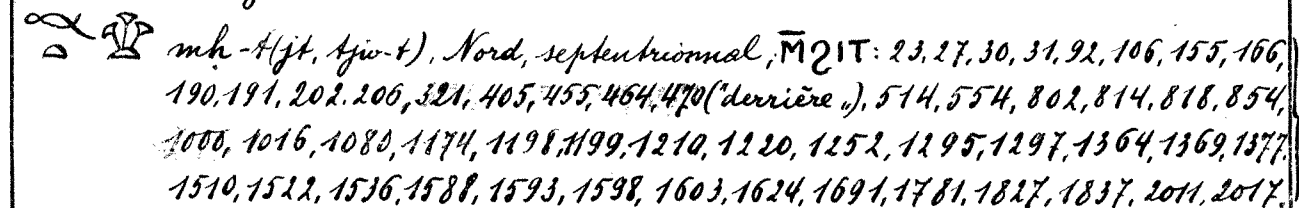 mḥ-t(jt, tjw-t), Nord, septentrionnal, M̄ϨIT: 23, 27, 30, 31, 92, 106, 155, 166,
190, 191, 202. 206, 321, 405, 455, 464, 470 ("derrière„), 514, 554, 802, 814, 818, 854,
1000, 1016, 1080, 1174, 1198, 1199, 1210, 1220, 1252, 1295, 1297, 1364, 1369, 1377.
1510, 1522, 1536, 1588, 1593, 1598, 1603, 1624, 1691, 1781, 1827, 1837, 2011, 2017,